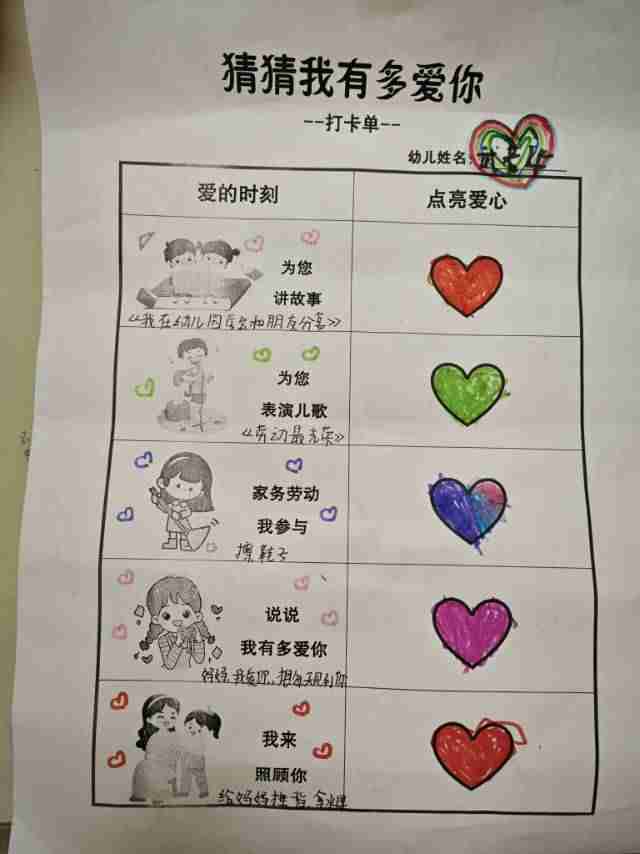 猜猜我有多爱你
--打卡单--
幼儿姓名:
爱的时刻
点亮爱心
为您
讲故事
《我在幼儿园怎么和朋友分享》
为您
表演儿歌
《劳动最光荣》
家务劳动
我参与
擦鞋子
说说
我有多爱你
妈妈,我爱你,想每天见到你
我来
照顾你
给妈妈捶背,拿水果